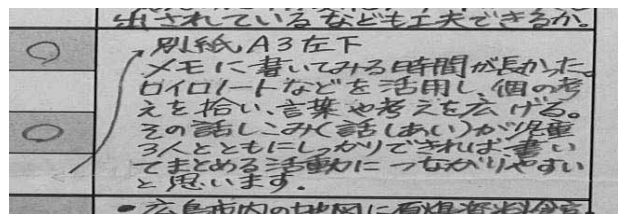 出されているなども工夫できるか。
別紙A3左下
メモに書いてみる時間が長かった。
ロイロノートなどを活用し、個の考
えを拾い、言葉や考えを広げる。
その話しこみ(話しあい)が児童
3人とともにしっかりできれば、書い
てまとめる活動につながりやすい
と思います。
•広島市内の地図に原爆資料館